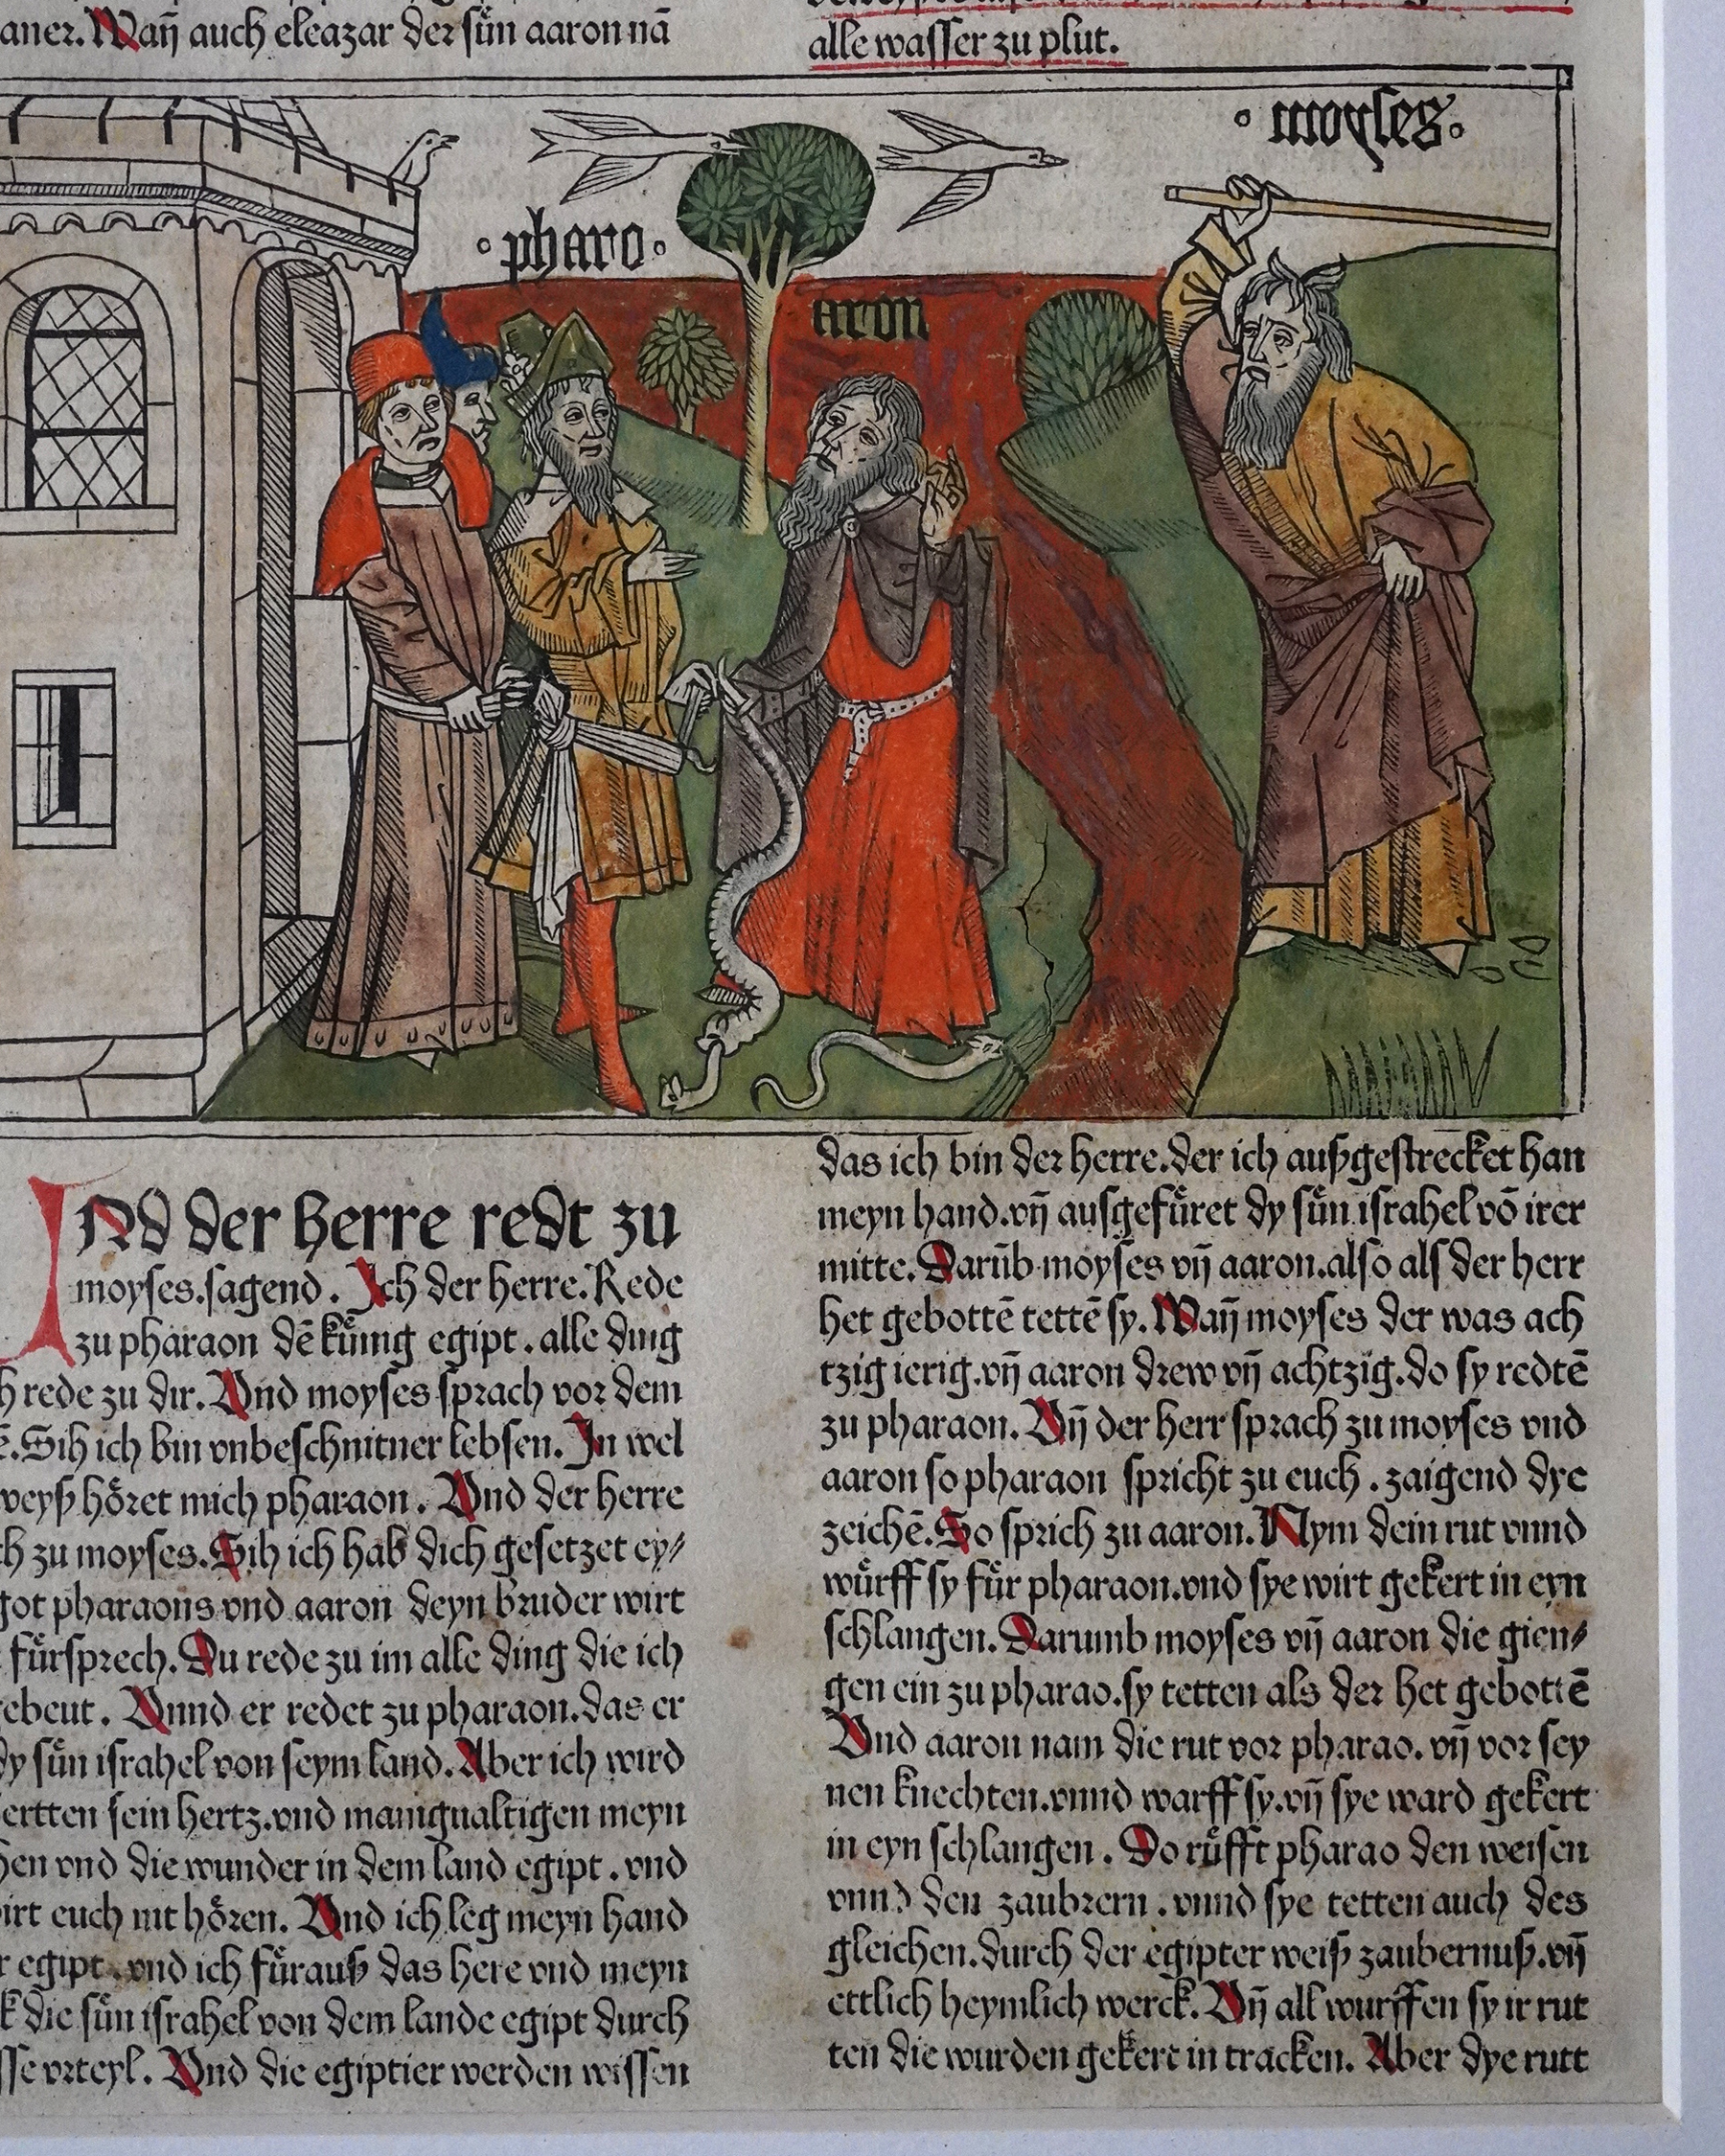 aner. Wañ auch eleazar der sün aaron nā
alle wasser zu plut.
moyses
pharo
aron
Nd der herre redt zu
moyses. sagend. Ich der herre. Rede
zu pharaon dē künig egipt. alle ding
rede zu dir. Vnd moyses sprach vor dem
Sih ich bin vnbeschnitner lebsen. In wel
weyß höret mich pharaon. Vnd der herre
zu moyses. Sih ich hab dich gesetzet ey⸗
got pharaons vnd aaron deyn bruder wirt
fürsprech. Du rede zu im alle ding die ich
gebeut. Vnnd er redet zu pharaon. das er
dy sün israhel von seym land. Aber ich wird
hertten sein hertz. vnd manigualtigen meyn
vnd die wunder in dem land egipt. vnd
wirt euch nit hören. Vnd ich leg meyn hand
egipt. vnd ich fürauß das here vnd meyn
die sün israhel von dem lande egipt durch
vrteyl. Vnd die egiptier werden wissen
das ich bin der herre. der ich außgestrecket han
meyn hand. vñ ausgefüret dy sün israhel vō irer
mitte. Darūb moyses vñ aaron. also als der herr
het gebottē tettē sy. Wañ moyses der was ach
tzig ierig. vñ aaron drew vñ achtzig. do sy redtē
zu pharaon. Vñ der herr sprach zu moyses vnd
aaron so pharaon spricht zu euch. zaigend dye
zeichē. So sprich zu aaron. Nym dein rut vnnd
würff sy für pharaon. vnd sye wirt gekert in eyn
schlangen. Darumb moyses vñ aaron die gien⸗
gen ein zu pharao. sy tetten als der het gebottē
Vnd aaron nam die rut vor pharao. vñ vor sey
nen knechten. vnnd warff sy. vñ sye ward gekert
in eyn schlangen. Do rüfft pharao den weisen
vnnd den zaubrern. vnnd sye tetten auch des
gleichen. durch der egipter weiß zaubernuß. vñ
ettlich heymlich werck. Vñ all wurffen sy ir rut
ten die wurden gekert in tracken. Aber dye rutt